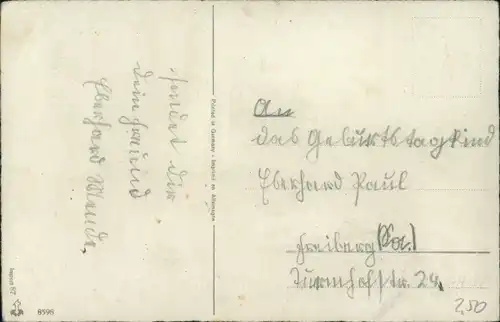 sendet dir
dein Freund
Eberhard Wende.
Printed in Germany - Imprimé en Allemagne
An
das Geburtstagkind
Eberhard Paul
Freiberg (Sa.)
Turmhofstr. 24.
8596
2,50